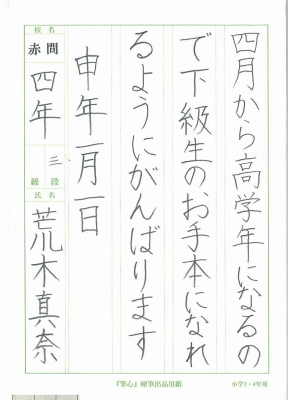 四月から高学年になるの
で下級生のお手本になれ
るようにがんばります
申年一月一日
校名
赤間
四年
三
級段
氏名
荒木真奈
『筆心』硬筆出品用紙
小学3・4年用